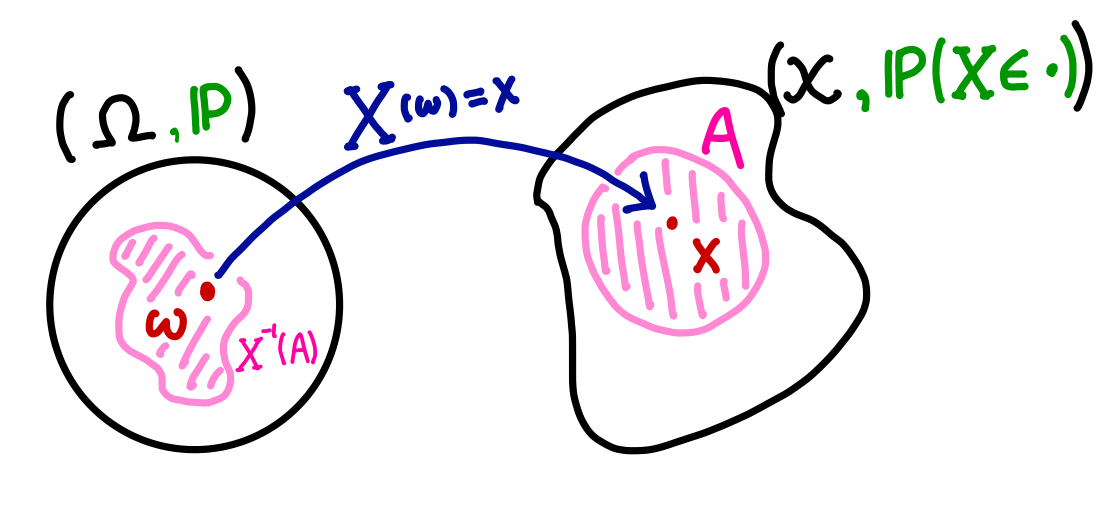 (Ω, ℙ)
X(ω)=x
(𝒳, ℙ(X∈·))
A
x
ω
X⁻¹(A)